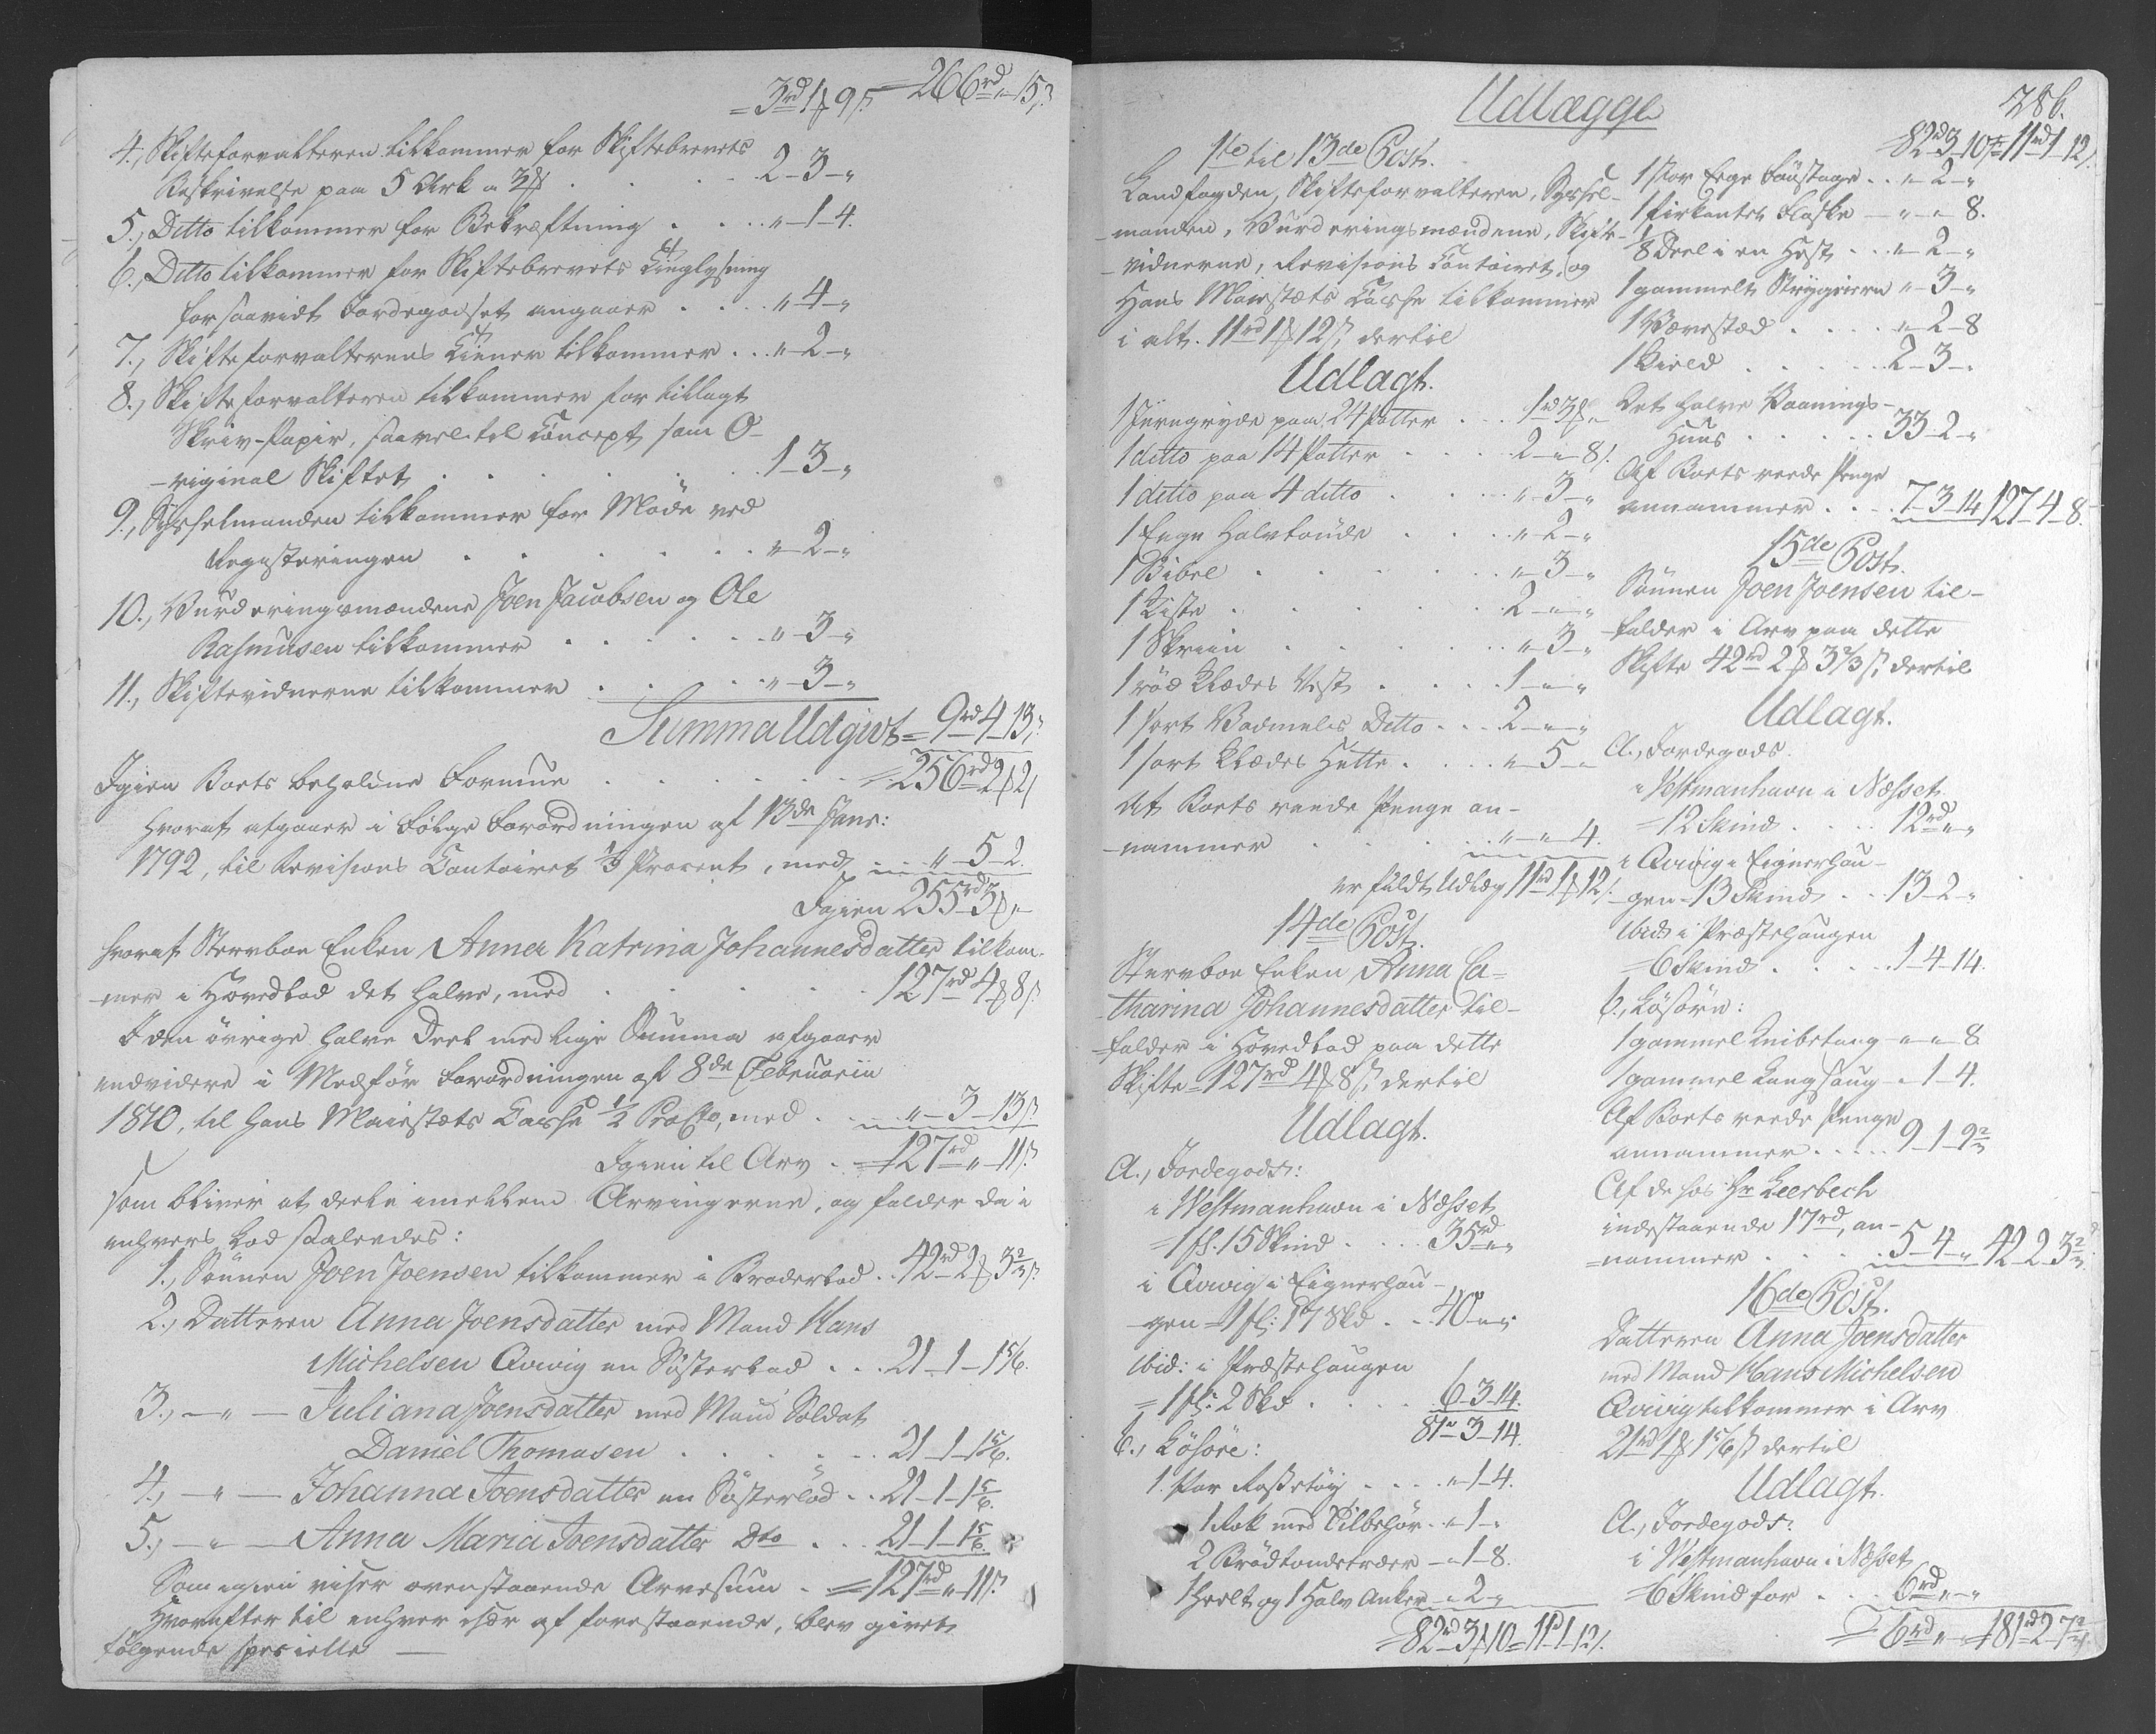 = 3rd 1 ß 9 s. = 266rd " 15 s.
4., Skifteforvalteren tilkommer for Skiftebrevets
Beskrivelse paa 5 Ark a 3 . . . 2-3-"
5., Ditto tilkommer for Bekræftning . . . "-1-4.
6., Ditto tilkommer for Skiftebrevets Tinglysning
forsaavidt Jordegodset angaaer . . . "-4-"
7., Skifteforvalterens Tiener tilkommer . . . "-2-"
8., Skifteforvalteren tilkommer for tillagt
Skriv-Papir, saavel til Concept som O-
-riginal Skiftet . . . 1-3-"
9., Sysselmanden tilkommer for Møde ved
Registeringen . . . "-2-"
10., Vurderingsmændene Joen Jacobsen og Ole
Rasmusen tilkommer . . . "-3-"
11., Skiftevidnerne tilkommer . . . "-3-"
Summa Udgivt = 9rd 4-13 s.
Igien Boets beholdne Formue . . . = 256rd 2 ß 2 s
hvoraf afgaaer i Følge Forordningen af 13de Janr:
1792, til Revisions Contoiret 1/3 Procent, med . . . "-5-2.
Igien 255rd 3 ß "
hvoraf Stervboe Enken Anna Katrina Johannesdatter tilkom-
-mer i Hovedlod det halve, med . . . 127rd 4 ß 8 s.
I den øvrige halve Deel med lige Summa afgaaer
endvidere i Medfør Forordningen af 8de Februarii
1810, til Hans Maiestæts Casse 1/2 ProCto, med . . . "-3-13 s.
Igien til Arv . = 127rd " 11 s.
som bliver at deele imellem Arvingerne, og falder da i
enhvers Lod saaledes:
1., Sønnen Joen Joensen tilkommer i Broderlod . . 42rd 2 ß 3 2/3 s.
2., Datteren Anna Joensdatter med Mand Hans
Michelsen Qvivig en Søsterlod . . . 21-1-1 5/6.
3., -"- Juliana Joensdatter med Mand Soldat
Daniel Thomasen . . . 21-1-1 5/6.
4., -"- Johanna Joensdatter en Søsterlod . . 21-1-1 5/6.
5., -"- Anna Maria Joensdatter Dto . . . 21-1-1 5/6.
Som igien viser ovenstaaende Arvesum . = 127rd " 11 s.
Hvorefter til enhver især af forestaaende, blev givet
følgende specielle —
Udlægge
286.
1ste til 13de Post.
Landfogden, Skifteforvalteren, Syssel-
-manden, Vurderingsmændene, Skifte-
-vidnerne, Revisions Contoiret, og
Hans Maiestæts Casse tilkommer
i alt. 11rd 1 ß 12 s, dertil
Udlagt.
1 Jerngryde paa 24 Potter . . . 1rd 3 ß "
1 ditto paa 14 Potter . . . 2-"-8 s.
1 ditto paa 4 ditto . . . "-3-"
1 Eege Halvtønde . . . "-2-"
1 Bibel . . . "-3-"
1 Kiste . . . 2-"-"
1 Skriin . . . "-3-"
1 rød Klædes Vest . . . 1-"-"
1 sort Vadmels Ditto . . . 2-"-"
1 sort Klædes Hette . . . "-5-"
Af Boets reede Penge an-
-nammer . . . "-"-4.
er fuldt Udlæg 11rd 1 ß 12 s.
14de Post.
Stervboe Enken Anna Ca-
-tharina Johannesdatter til-
-falder i Hovedlod paa dette
Skifte 127rd 4 ß 8 s. dertil
Udlagt.
A., Jordegods:
i Westmanhavn i Næsset
= 1 fl. 15 Skind . . . 35rd "-"
i Qvivig i Eignerhau-
-gen = 1 fl: 17 Skd . . . 40-"-"
ibid: i Præstehaugen
= 1 fl: 2 Skd . . . 6-3-14.
81rd-3-14.
b., Løsøre:
1. Par . . . "-1-4.
1 Rok med Tilbehør . "-1-"
2 Brødtøndetræer - "-1-8.
1 heelt og 1 Halv Anker - "-2-"
= 82rd 3 ß 10 = 11rd 1-12 s.
= 82rd 3-10 s = 11rd 1-12 s.
1 stor Eege Føustage . . "-2-"
1 fiirkantet Flaske - "-"-8.
1/8 Deel i en Hest . . . "-2-"
1 gammelt Strygejern "-3-"
1 Vævestæd . . . "-2-8
1 Kield . . . 2-3-"
Det halve Vaanings-
Huus . . . 33-2-"
Af Boets reede Penge
annammer . . . 7-3-14 127-4-8.
15de Post.
Sønnen Joen Joensen til-
-falder i Arv paa dette
Skifte 42rd 2 ß 3 2/3 s, dertil
Udlagt.
A., Jordegods.
i Westmanhavn i Næsset
= 12 Skind . . . 12rd "-"
i Qvivig i Eignerhau-
-gen = 13 Skind . . 13-2-"
ibid: i Præstehaugen
= 6 Skind . . . 1-4-14.
b., Løsøre:
1 gammel Knibetang "-"-8
1 gammel Langsaug - "-1-4.
Af Boets reede Penge
annammer . . . 9-1-9 2/3
Af de hos Hr Leerbech
indestaaende 17rd, an-
-nammer . . . 5-4-" 42-2-3 2/3.
16de Post.
Datteren Anna Joensdatter
med Mand Hans Michelsen
Qvivig tilkommer i Arv
21rd 1 ß 1 5/6 s dertil
Udlagt.
A., Jordegods:
i Westmanhavn i Næsset
= 6 Skind for . . . 6rd "-"
= 6rd "-" = 181rd 2-7 2/3.